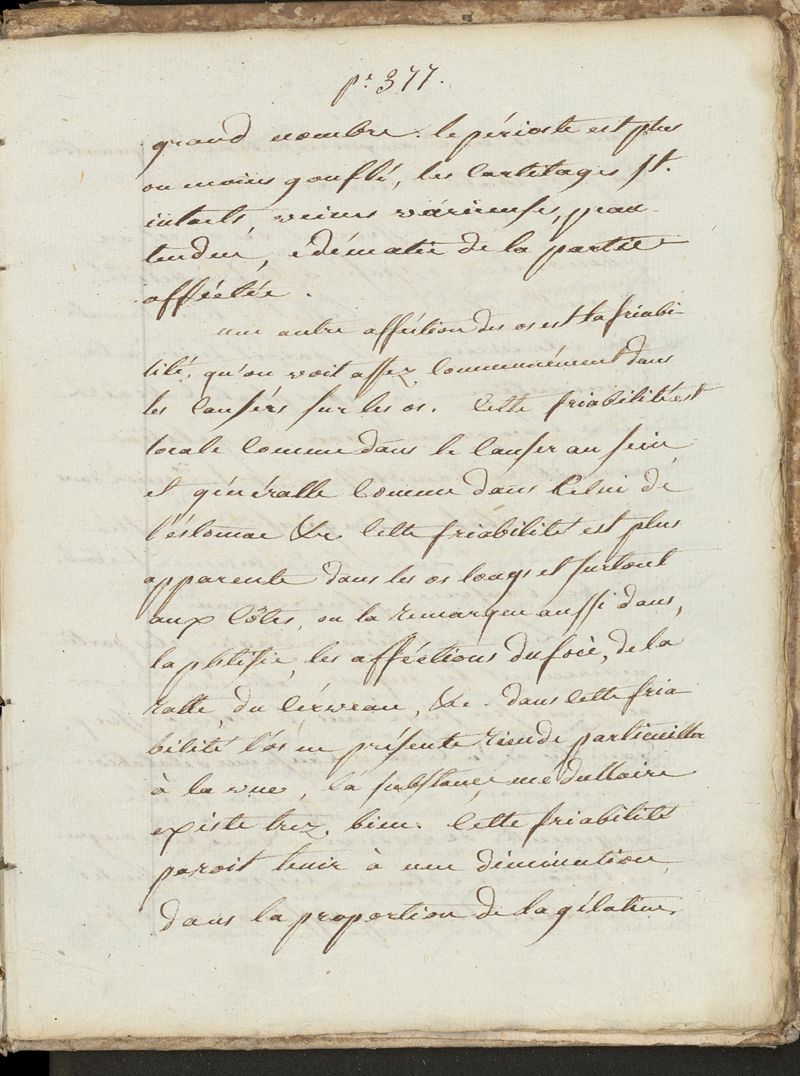 pr. 377.
grand nombre. le périoste est plus
ou moins gonflé, les cartilages st.
intacts, veines variceuses, peau
tendue, èdématié de la partie
afféctée.
une autre afféction des os est la friabi-
lité. qu'on voit assez communément dans
les cansérs sur les os. Cette friabilité est
locale comme dans le canser au sein
et généralle comme dans celui de
l'éstomac &c cette friabilité est plus
apparente dans les os longs et surtout
aux côtes, on la remarque aussi dans,
la phtisie, les afféctions du foie, de la
ratte, du cérveau, &c. dans cette fria
bilité l'os ne présente rien de particuillier
à la vue, la substance médullaire
existe trez bien. Cette friabilité
paroit tenir à une diminution
dans la proportion de la gélatine,